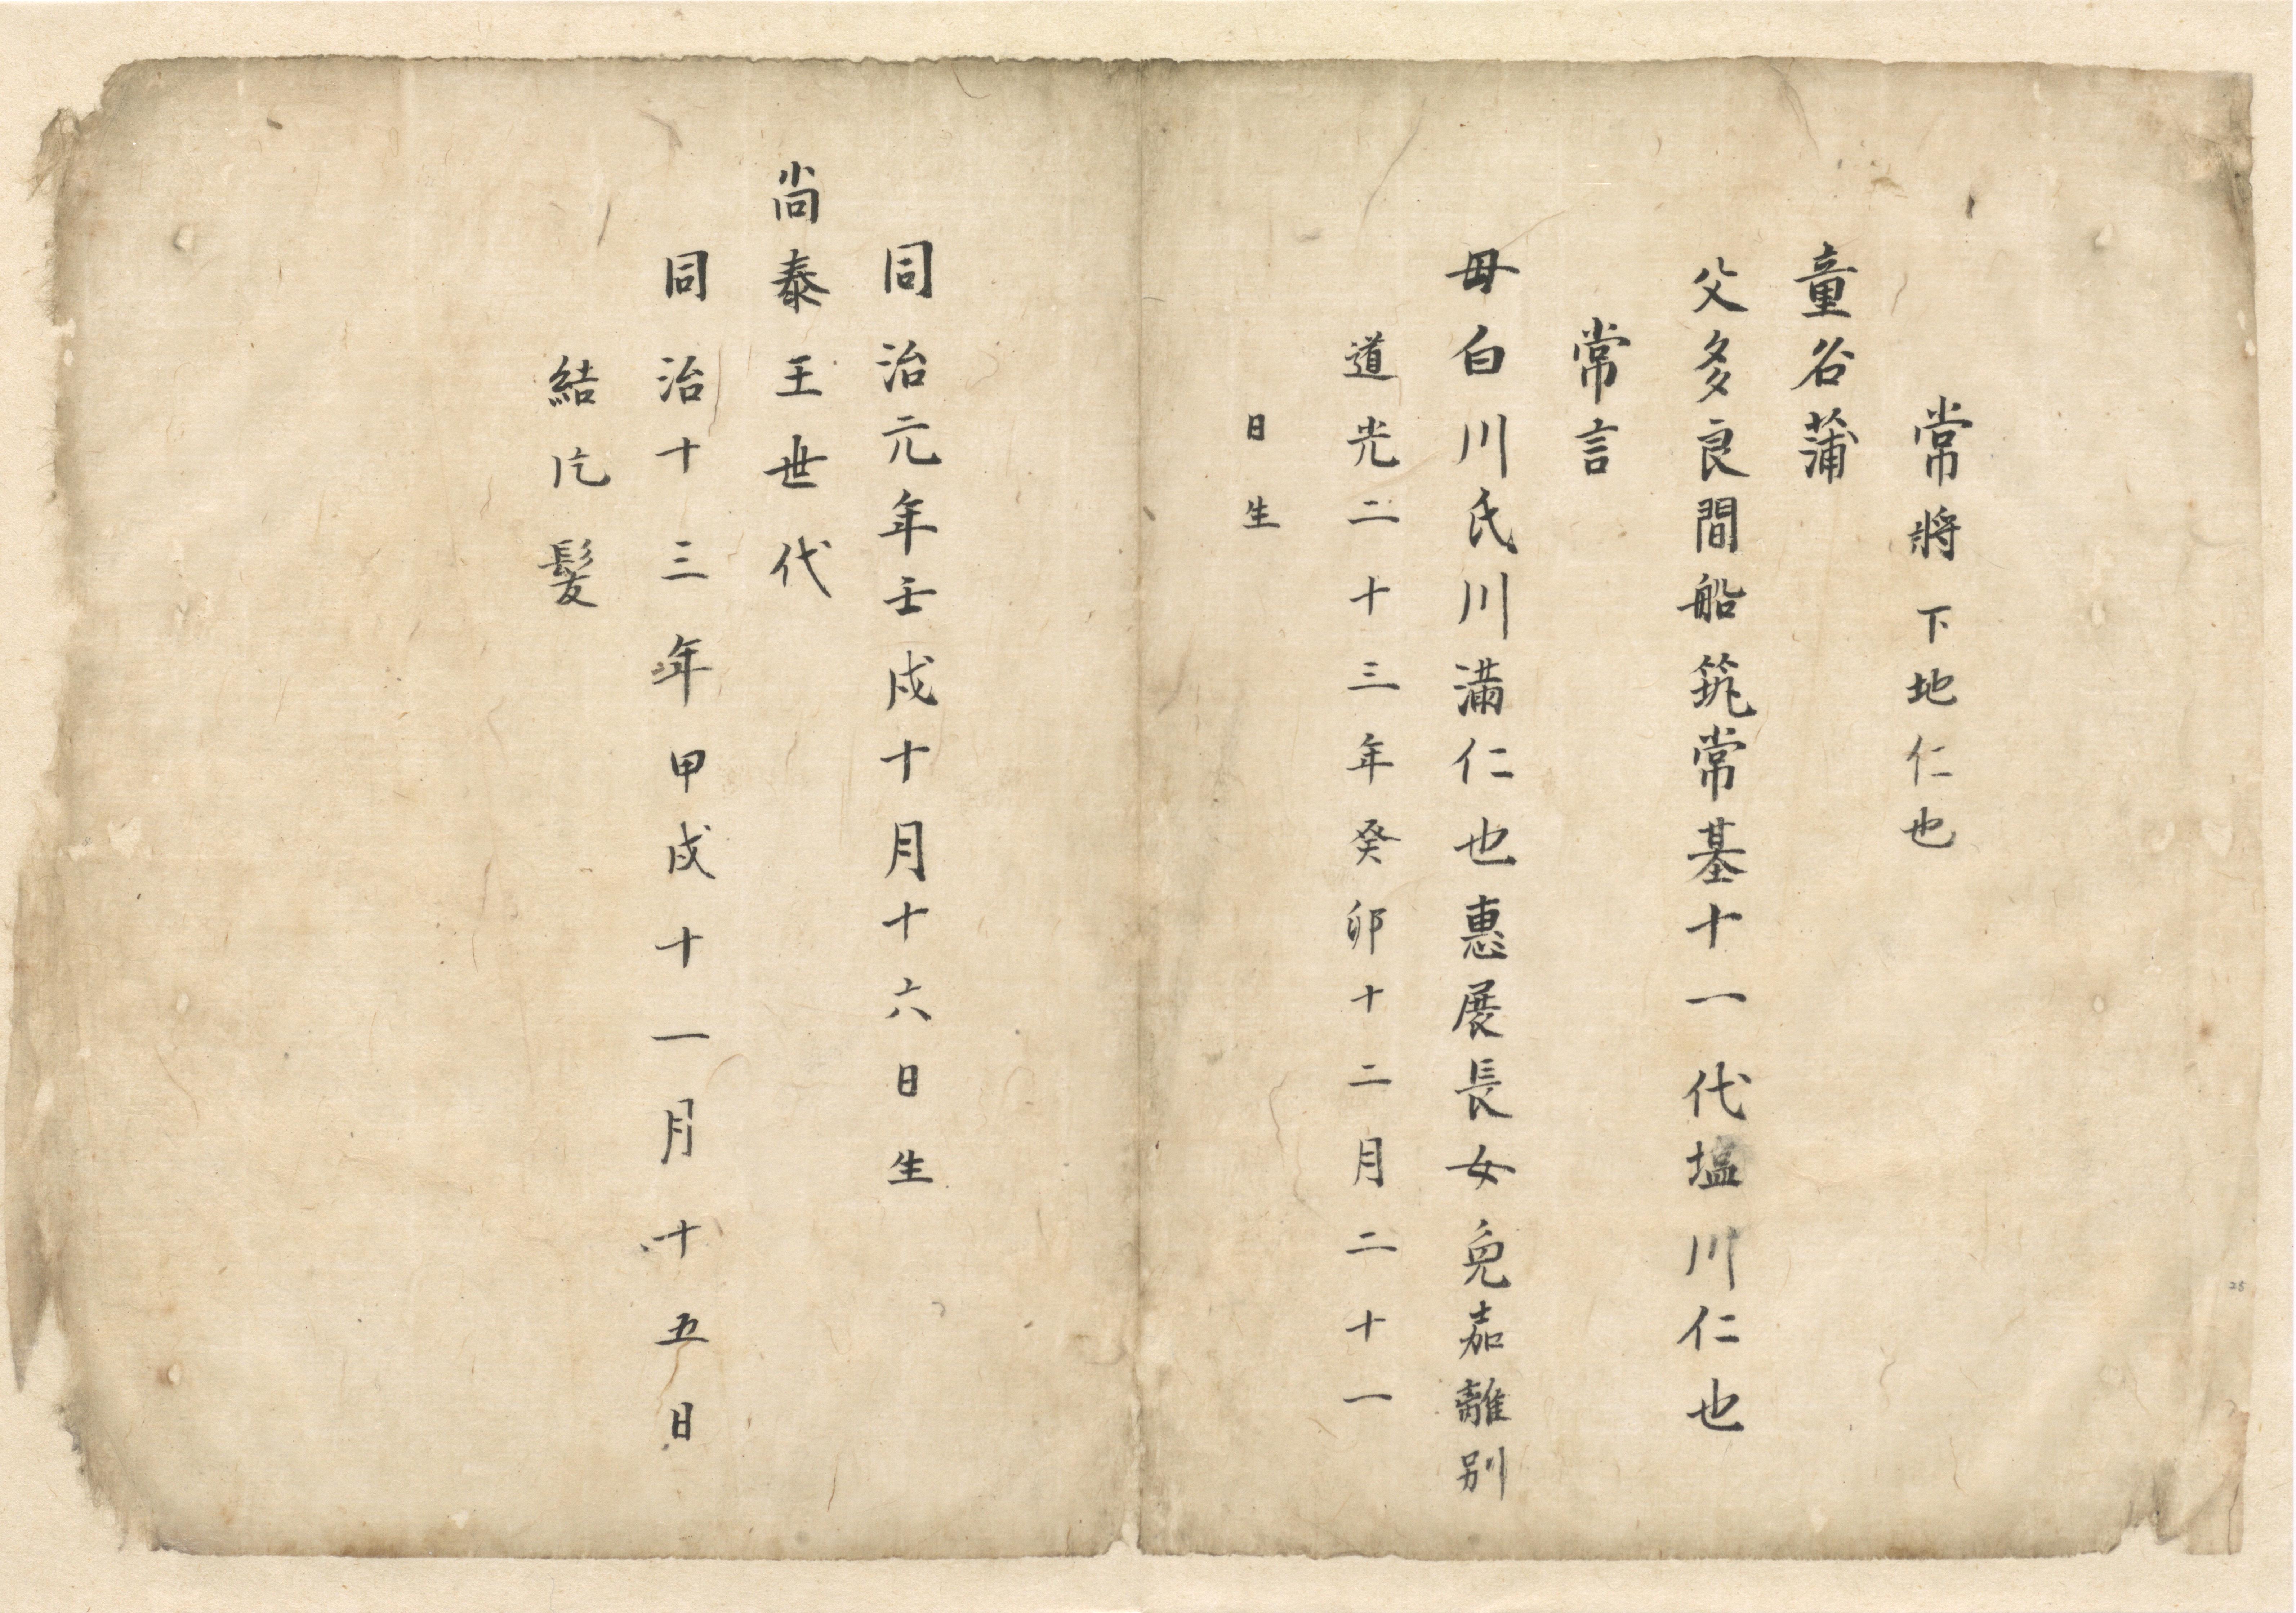 常將下地仁也
童名蒲
父多良間船筑常基十一代塩川仁也
常言
母白川氏川滿仁也惠展長女免嘉離別
道光二十三年癸卯十二月二十一
日生
同治元年壬戌十月十六日生
尚泰王世代
同治十三年甲戌十一月十五日
結髮
25